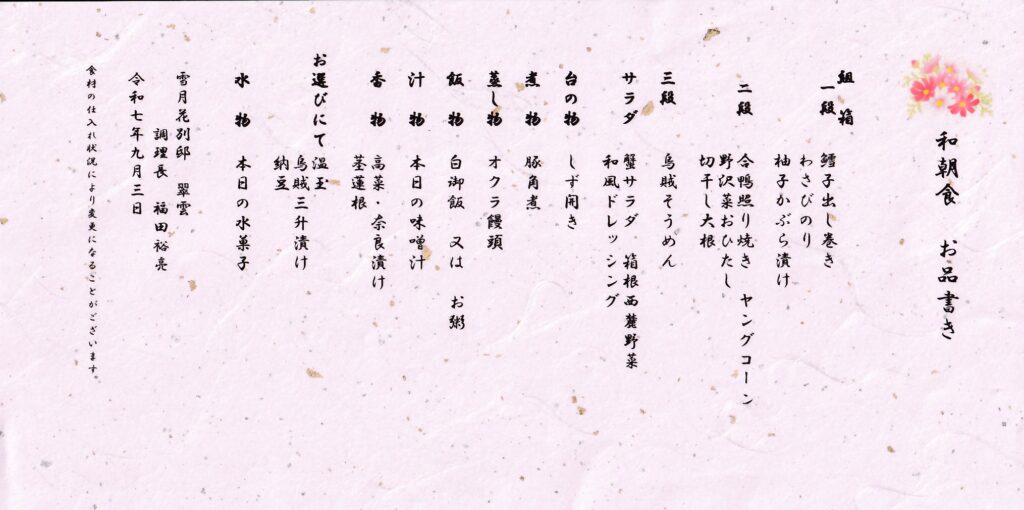 和朝食 お品書き
組 箱
一段 鱈子出し巻き
わさびのり
柚子かぶら漬け
二段 合鴨照り焼き ヤングコーン
野沢菜おひたし
切干し大根
三段 烏賊そうめん
サラダ 蟹サラダ 箱根西麓野菜
和風ドレッシング
台の物 しず開き
煮 物 豚角煮
蒸し物 オクラ饅頭
飯 物 白御飯 又は お粥
汁 物 本日の味噌汁
香 物 高菜・奈良漬け
茎蓮根
お選びにて 温玉
烏賊三升漬け
納豆
水 物 本日の水菓子
雪月花別邸 翠雲
調理長 福田裕亮
令和七年九月三日
食材の仕入れ状況により変更になることがございます。